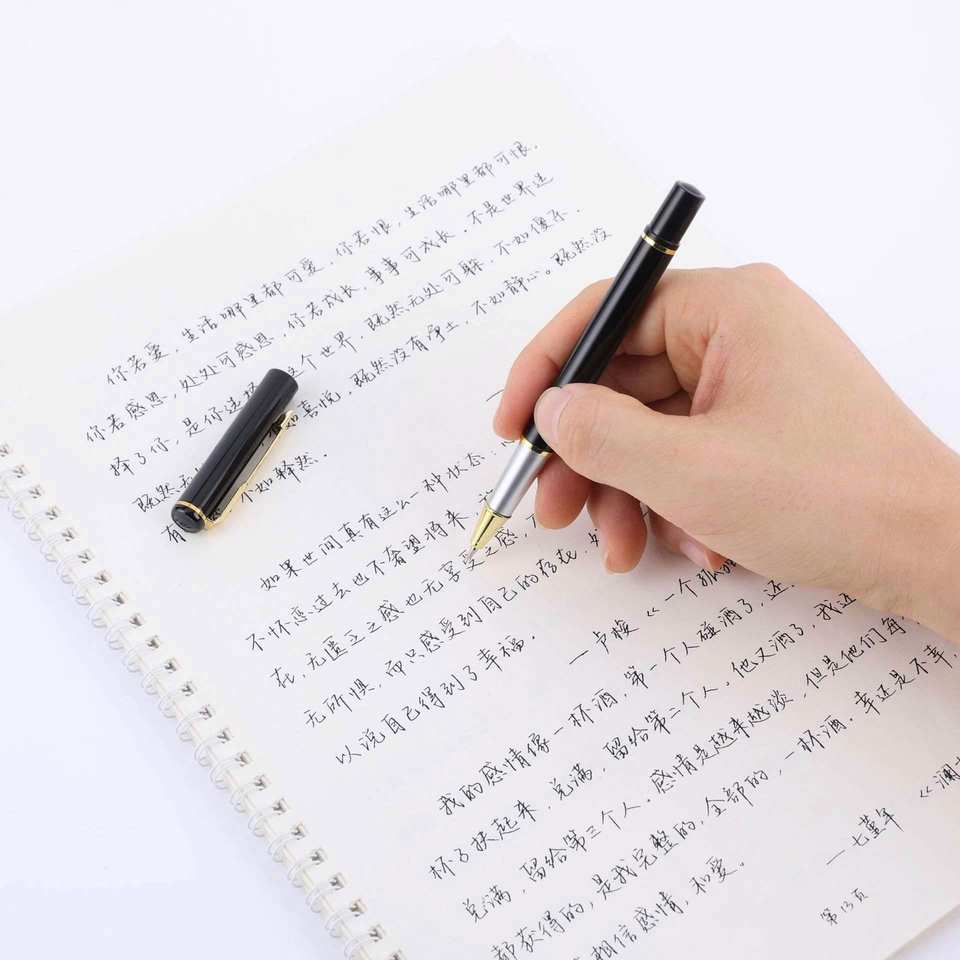 你若爱，生活哪里都可爱，你若恨，生活哪里都可恨，
你若感恩，处处可感恩，你若成长，事事可成长，不是世界选
择了你，是你选择 这个世界，既然无处可躲，不如傻乐，
既然无 如喜悦，既然没有净土，不如静心。既然没
有 不如释然。
如果世间真有这么一种状态：
不怀恋过去也不奢望将来，
在，无匮乏之感也无享受之感，
无所惧，而只感受到自己的存在，
以说自己得到了幸福。
—卢梭《一个孤
我的感情像一杯酒，第一个人碰洒了，还
杯子扶起来，兑满，留给第二个人，他又洒了，我还
兑满，留给第三个人，感情是越来越淡，但是他们每
都获得的，是我完整的，全部的，一杯酒，幸还是不幸，
相信感情，和爱。
—七堇年《澜
第13页